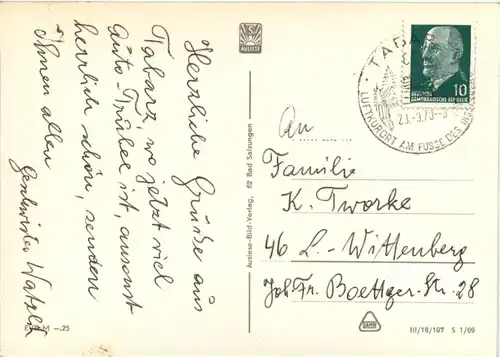 Herrliche Grüße aus
Tabarz, wo jetzt viel
Auto-Trubel ist, ansonst
herrlich schön, senden
Ihnen allen
Geschwister
EVP M –.25
AUSLESE
Auslese-Bild-Verlag, 62 Bad Salzungen
TABARZ
LUFTKURORT AM FUSSE DES
23.-9.70-
10
DEUTSCHE
DEMOKRATISCHE REPUBLIK
An
Familie
K. Tworke
46 L.-Wittenberg
Joh. Fr. Boettger-Str. 28
III/18/197 S 1/69